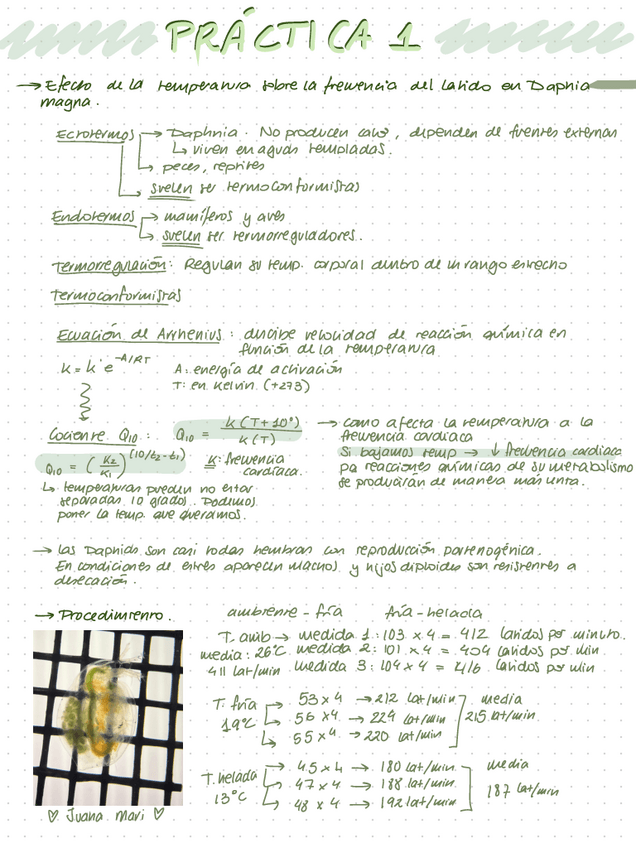 PRÁCTICA 1
→ Efecto de la temperatura sobre la frecuencia del latido en Daphnia
magna.
Ectotermos → Daphnia. No producen calor, dependen de fuentes externan
↳ viven en aguas templadas.
↳ peces, reptiles
↳ suelen ser termoconformistas
Endotermos → mamíferos y aves
↳ suelen ser termorreguladores.
Termorregulación: Regulan su temp. corporal dentro de un rango estrecho
Termoconformistas
Ecuación de Arrhenius: describe velocidad de reacción química en
función de la temperatura
k = k' e^-A/RT
A: energía de activación
T: en Kelvin (+273)
Cociente Q10:
Q10 = k(T+10°) / k(T)
Q10 = (K2/K1)^(10/t2-t1)
K: frecuencia
cardíaca.
↳ temperaturas pueden no estar
separadas 10 grados. Podemos
poner la temp. que queramos.
→ como afecta la temperatura a la
frecuencia cardiaca
Si bajamos temp → ↓ frecuencia cardiaca
pq reacciones químicas de su metabolismo
se producirán de manera más lenta.
→ las Daphnias son casi todas hembras con reproducción partenogénica.
En condiciones de estrés aparecen machos y hijos diploides son resistentes a
desecación.
→ Procedimiento.
ambiente - fría
fría - helada
T. amb → medida 1: 103 x 4 = 412 latidos por minuto.
media: 26°C medida 2: 101 x 4 = 404 latidos por min.
411 lat/min medida 3: 104 x 4 = 416 latidos por min
T. fría
19°C
53 x 4 → 212 lat/min
56 x 4 → 224 lat/min
55 x 4 → 220 lat/min
media
215 lat/min
T. helada
13°C
45 x 4 → 180 lat/min
47 x 4 → 188 lat/min
48 x 4 → 192 lat/min
media
187 lat/min
♡ Juana Mari ♡